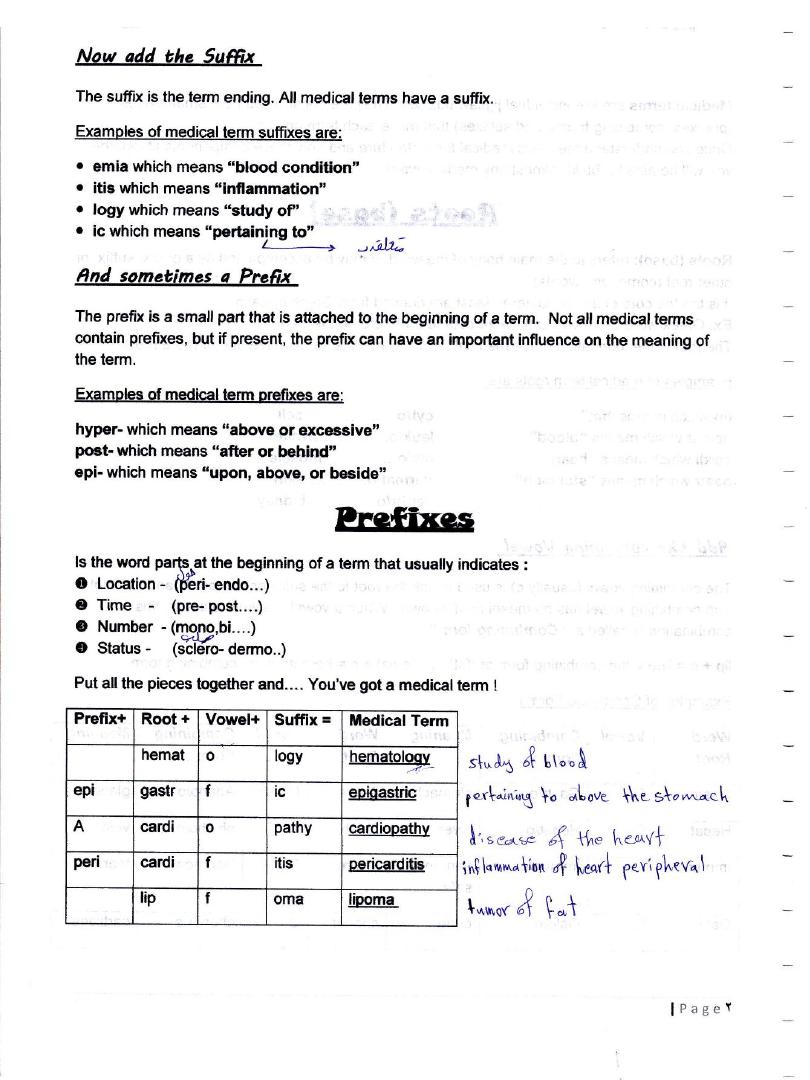 Now add the Suffix
The suffix is the term ending. All medical terms have a suffix.
Examples of medical term suffixes are:
• emia which means “blood condition”
• itis which means “inflammation”
• logy which means “study of”
• ic which means “pertaining to”
And sometimes a Prefix
The prefix is a small part that is attached to the beginning of a term. Not all medical terms
contain prefixes, but if present, the prefix can have an important influence on the meaning of
the term.
Examples of medical term prefixes are:
hyper- which means “above or excessive”
post- which means “after or behind”
epi- which means “upon, above, or beside”
Prefixes
Is the word parts at the beginning of a term that usually indicates :
❶ Location - (peri- endo...)
حول
❷ Time - (pre- post....)
❸ Number - (mono,bi....)
❹ Status - (sclero- dermo..)
Put all the pieces together and.... You've got a medical term !
Prefix+ Root + Vowel+ Suffix = Medical Term
hemat o logy hematology study of blood
epi gastr f ic epigastric pertaining to above the stomach
A cardi o pathy cardiopathy disease of the heart
peri cardi f itis pericarditis inflammation of heart peripheral
lip f oma lipoma tumor of fat
| Page ٢